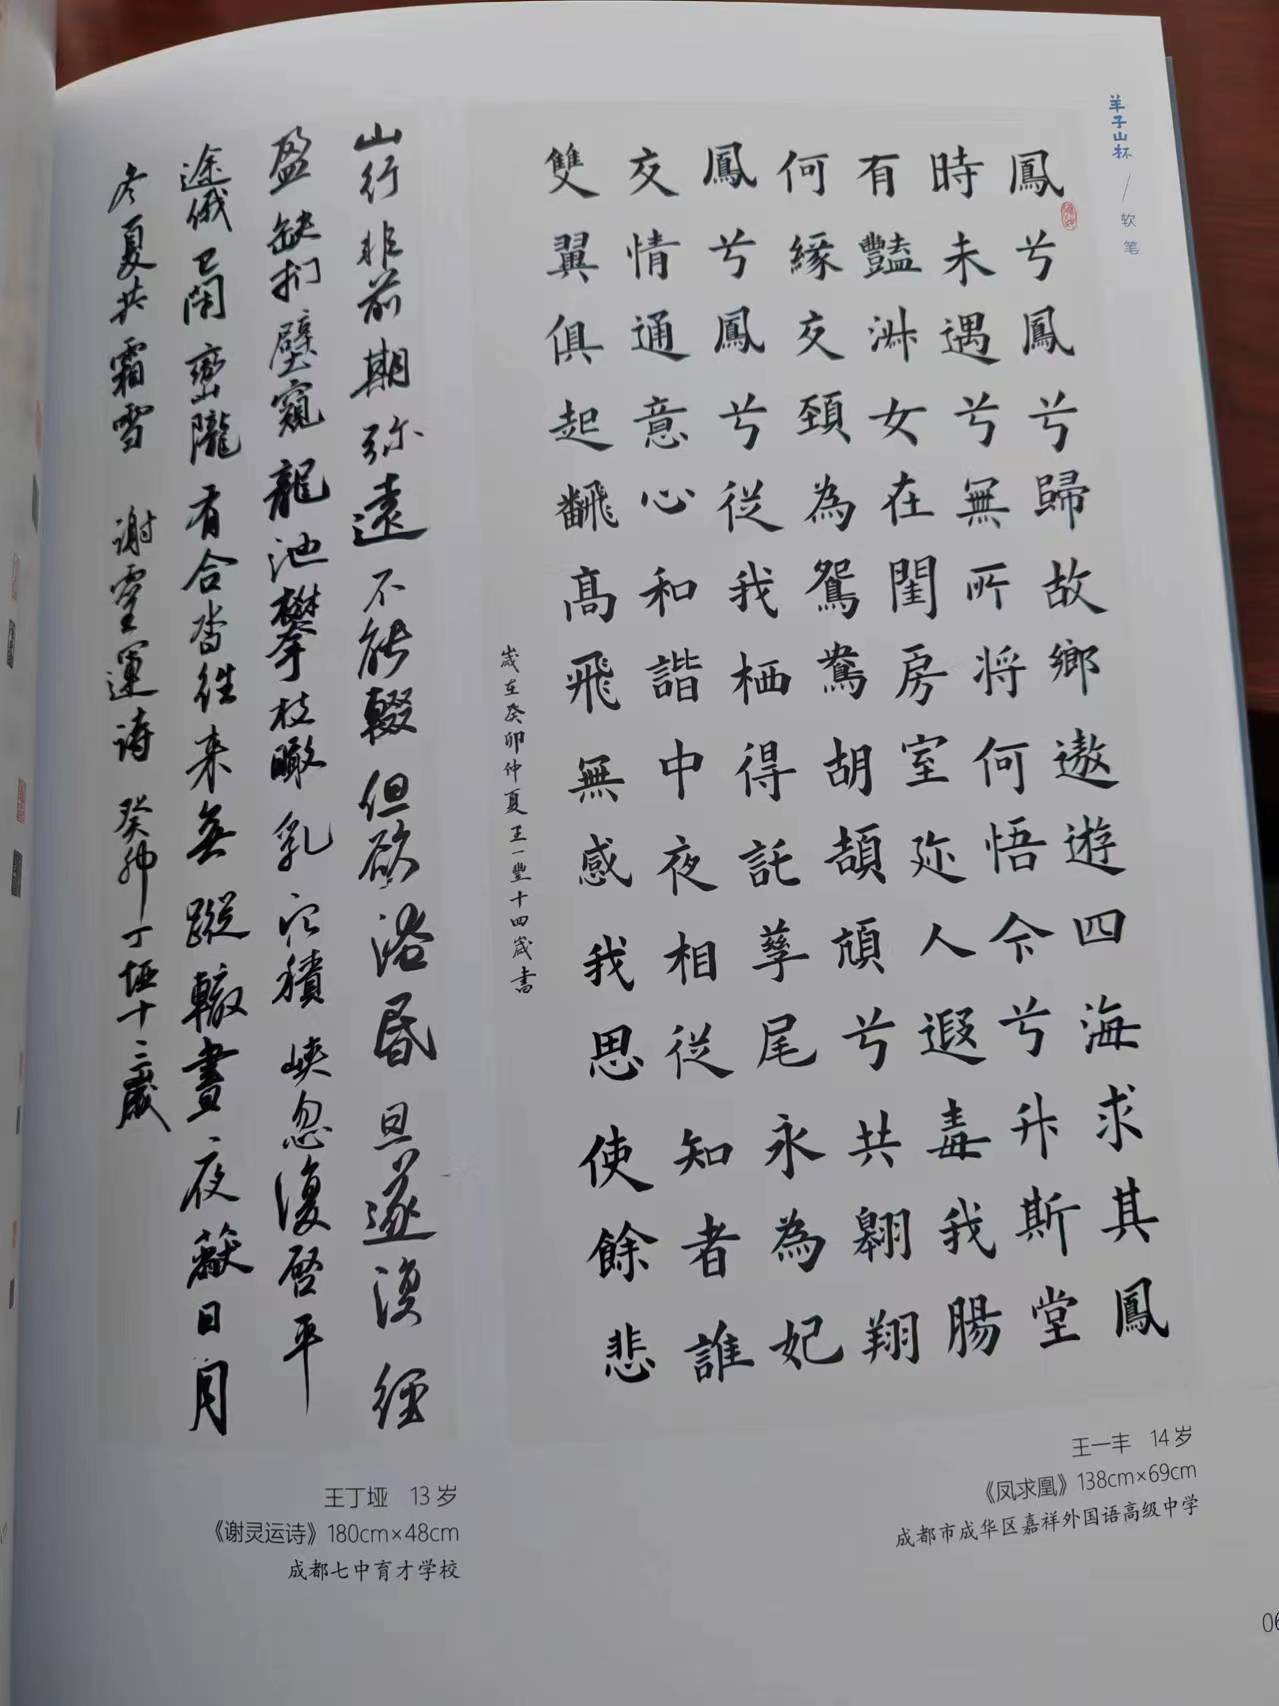 羊子山杯 / 软笔
鳳兮鳳兮歸故鄉遨遊四海求其鳳
時未遇兮無所將何悟今兮升斯堂
有豔淑女在閨房室迩人遐毒我腸
何緣交頸為鴛鴦胡頡頏兮共翱翔
鳳兮鳳兮從我栖得託孳尾永為妃
交情通意心和諧中夜相從知者誰
雙翼俱起翻高飛無感我思使餘悲
歲在癸卯仲夏王一豐十四歲書
山行非前期弥遠不能輟但欲淹昏旦遂復經
盈缺捫壁窺龍池攀枝瞰乳穴積峽忽復啓平
途俄已閉巒隴有合沓往来無蹤轍晝夜蔽日月
冬夏共霜雪 谢靈運诗 癸卯丁埡十三歲
王一丰 14岁
《凤求凰》138cm×69cm
成都市成华区嘉祥外国语高级中学
王丁垭 13岁
《谢灵运诗》180cm×48cm
成都七中育才学校